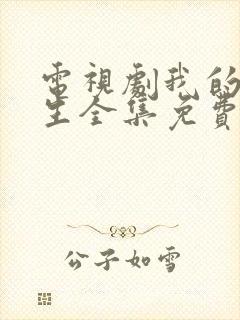 電視劇我的
生全集免費
公子如雪